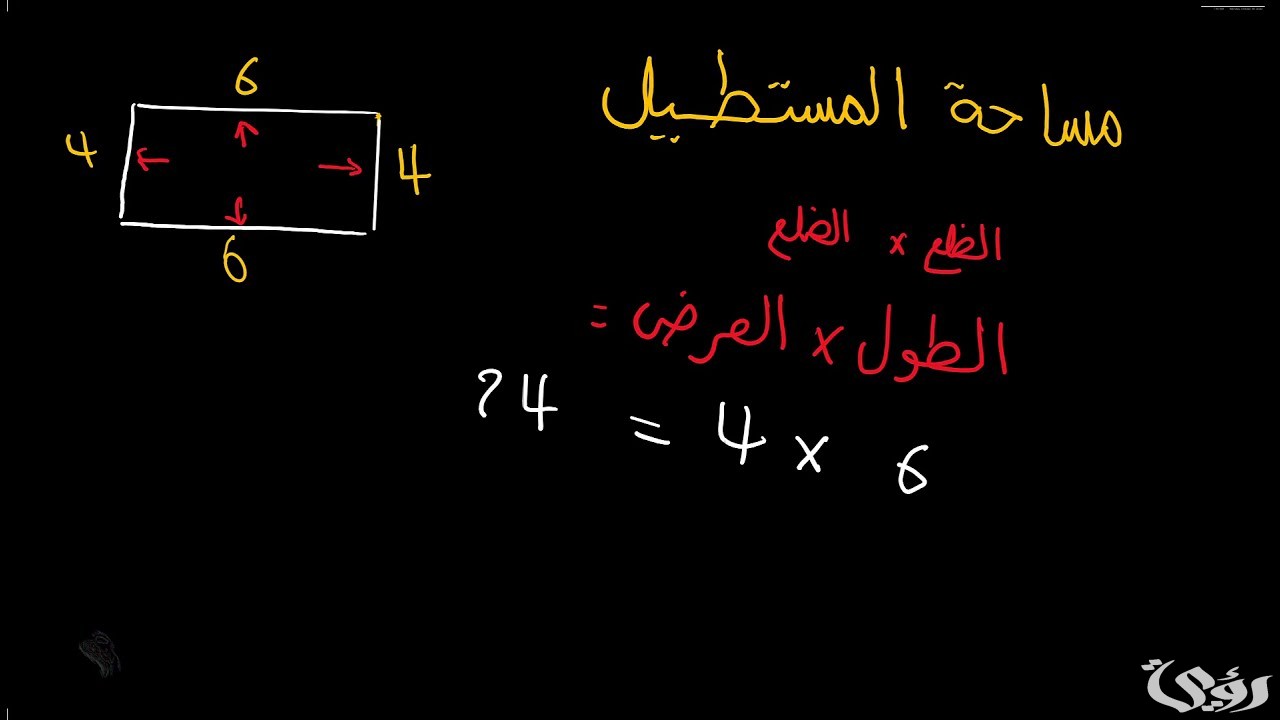 مساحة المستطيل
6
4
4
6
الظلع × الضلع
الطول × العرض =
6 × 4 = 24
رؤية